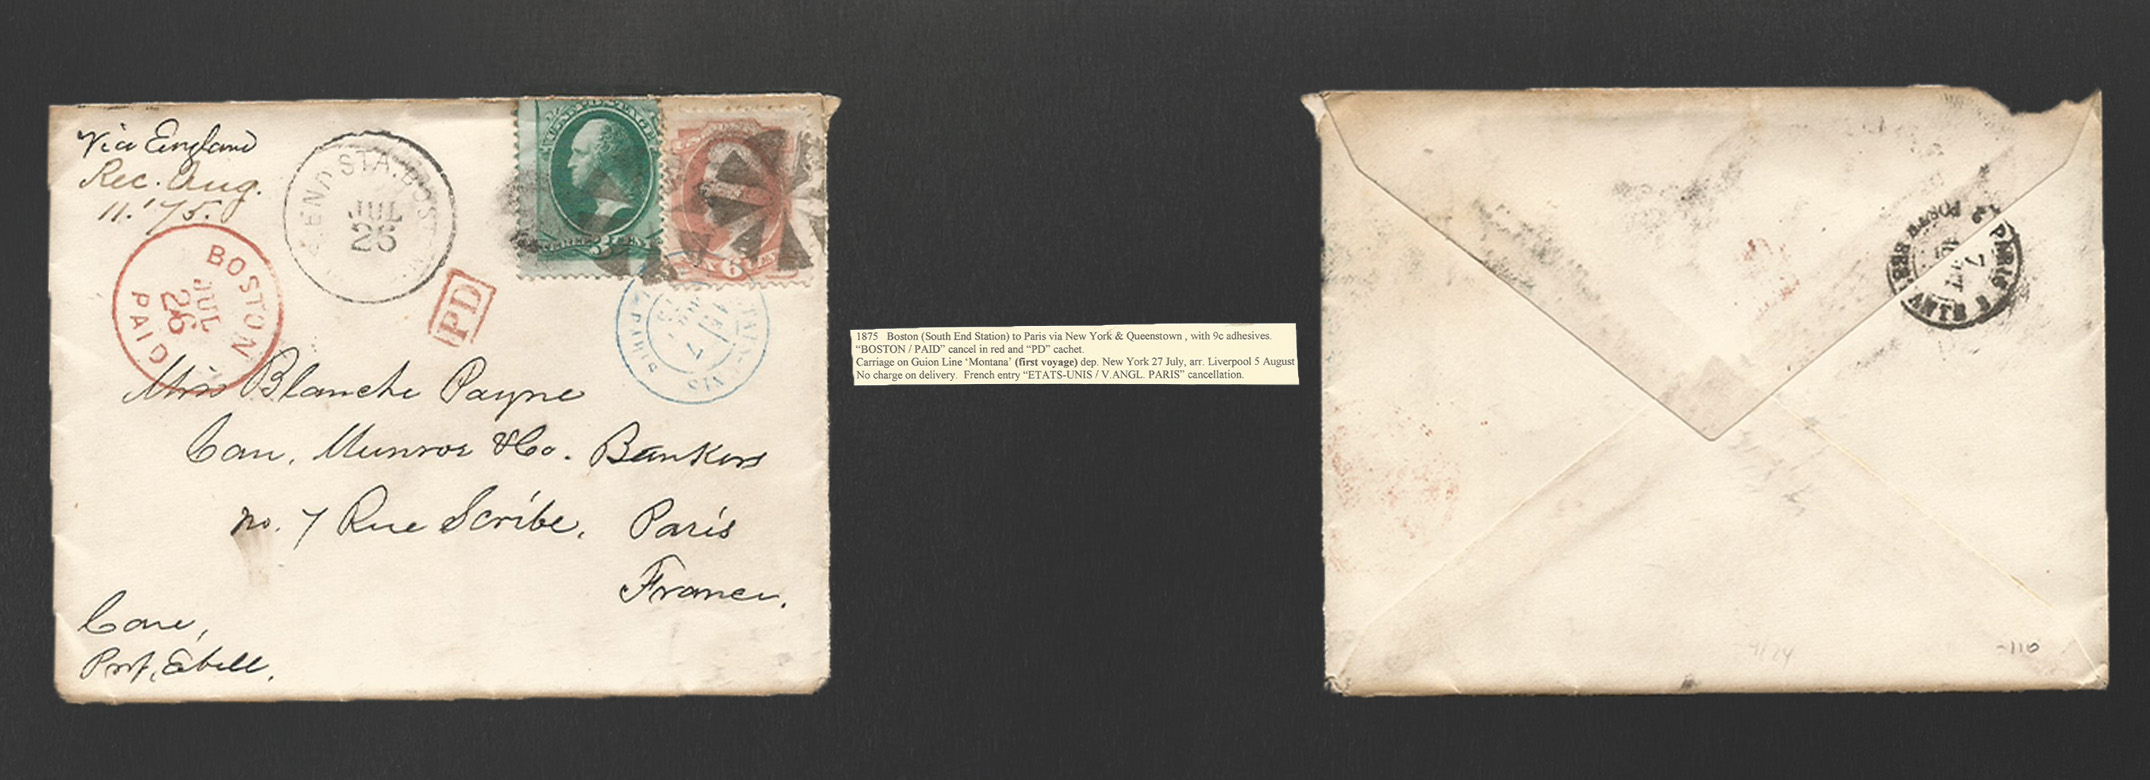 Via England
Rec. Aug.
11. '75.
END STA. BOST
JUL
26
BOSTON
JUL
26
PAID
PD
3
6
Miss Blanche Payne
Care, Munroe & Co. Bankers
no. 7 Rue Scribe, Paris
France.
Care,
Prof. Ebell.
1875 Boston (South End Station) to Paris via New York & Queenstown , with 9c adhesives.
“BOSTON / PAID” cancel in red and “PD” cachet.
Carriage on Guion Line ‘Montana’ (first voyage) dep. New York 27 July, arr. Liverpool 5 August
No charge on delivery. French entry “ETATS-UNIS / V.ANGL. PARIS” cancellation.
PARIS
9/74
-110